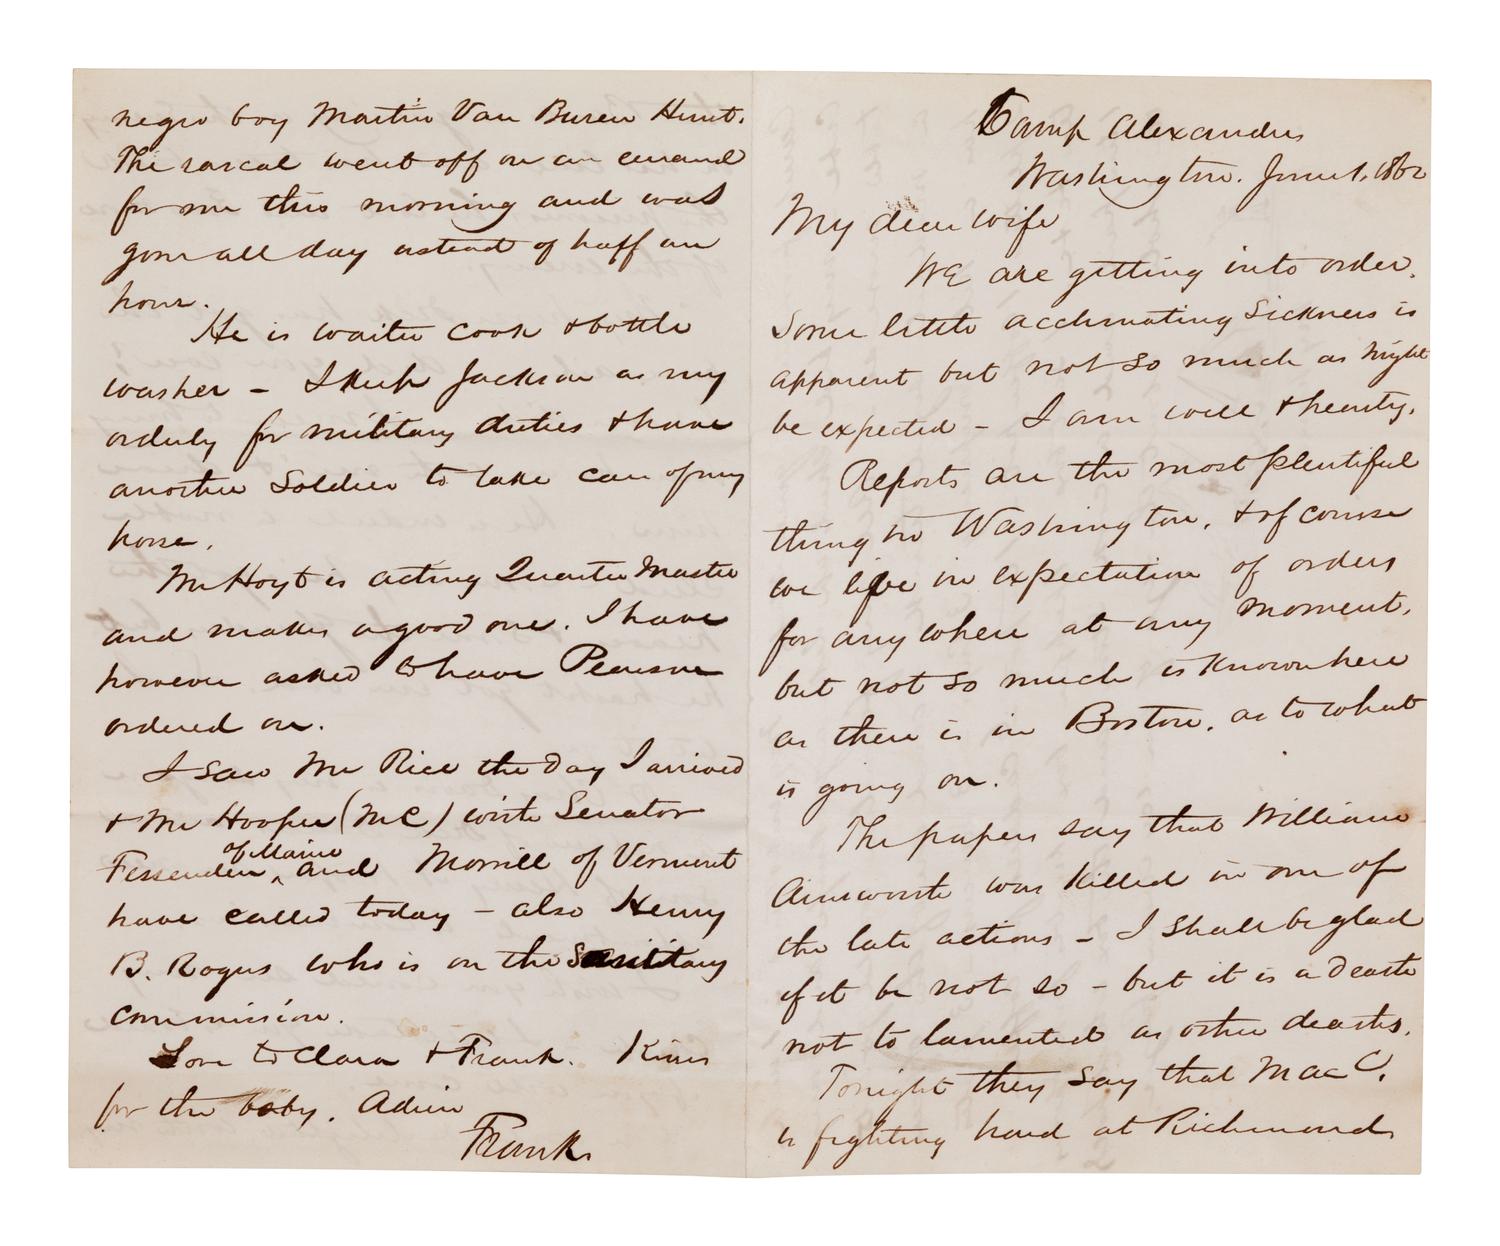 Camp Alexander
Washington. June 1, 1862
My dear wife
We are getting into order.
Some little acclimating Sickness is
apparent but not so much as might
be expected – I am well & hearty.
Reports are the most plentiful
thing in Washington, & of course
we live in expectation of orders
for any where at any moment,
but not so much is known here
as there is in Boston, as to what
is going on.
The papers say that William
Ainsworth was killed in one of
the late actions – I shall be glad
if it be not so – but it is a death
not to lamented as other deaths.
Tonight they say that Mac C.
is fighting hard at Richmond
negro boy Martin Van Buren Hunt.
The rascal went off on an errand
for me this morning and was
gone all day instead of half an
hour.
He is waiter cook & bottle
washer – I keep Jackson as my
orderly for military duties & have
another Soldier to take care of my
horse.
Mr Hoyt is acting Quarter Master
and makes a good one. I have
however asked to have Pearson
ordered on.
I saw Mr Rice the day I arrived
& Mr Hooper (MC) with Senator
Fessenden of Maine and Morrill of Vermont
have called today – also Henry
B. Rogers who is on the Sanitary
commission.
Love to Clara & Frank. Kisses
for the baby. Adieu
Frank